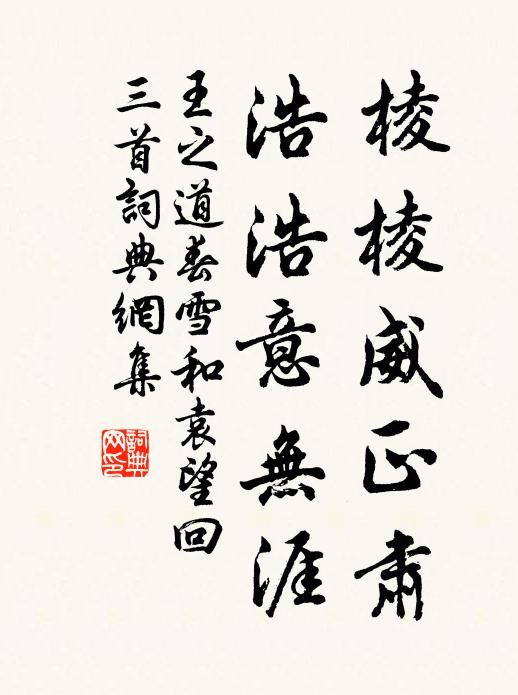 棱棱威正肅
浩浩意無涯
王之道春雪和袁望回
三首詞典網集
詞典網印